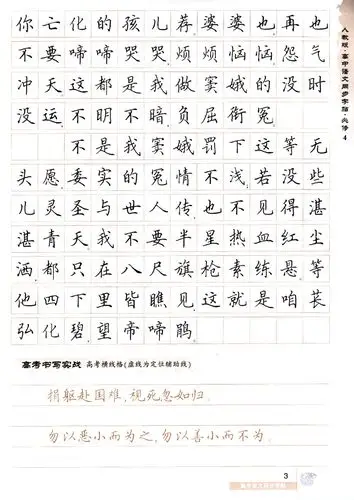 你亡化的孩儿荐婆婆也再也
不要啼啼哭哭烦烦恼恼怨气
冲天这都是我做窦娥的没时
没运不明不暗负屈衔冤
不是我窦娥罚下这等无
头愿委实的冤情不浅若没些
儿灵圣与世人传也不见得湛
湛青天我不要半星热血红尘
洒都只在八尺旗枪素练悬等
他四下里皆瞧见这就是咱苌
弘化碧望帝啼鹃
人教版·高中语文同步字帖·必修4
高考书写实战 高考横线格(虚线为定位辅助线)
捐躯赴国难,视死忽如归。
勿以恶小而为之,勿以善小而不为。
3
高中语文同步字帖